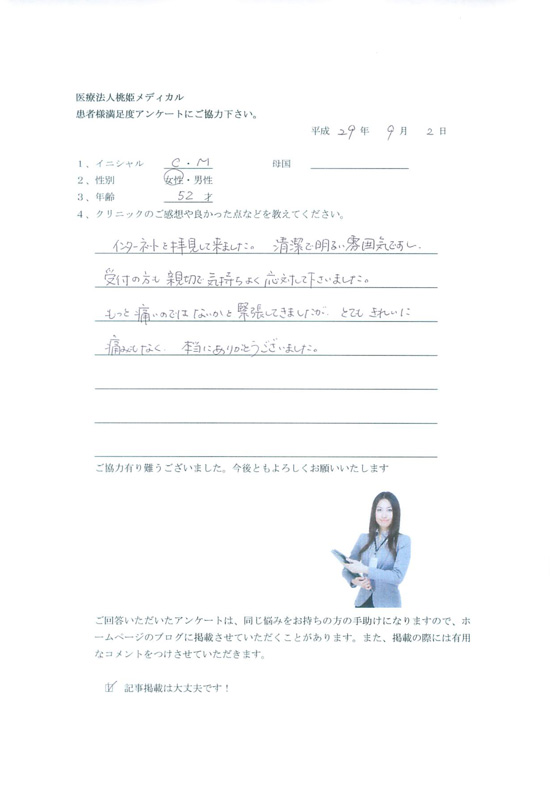 医療法人桃姫メディカル
患者様満足度アンケートにご協力下さい。
平成 29 年 9 月 2 日
1、イニシャル C・M 母国
2、性別 女性・男性
3、年齢 52 才
4、クリニックのご感想や良かった点などを教えてください。
インターネットを拝見して来ました。 清潔で明るい雰囲気ですし、
受付の方も 親切で気持ちよく 応対して下さいました。
もっと 痛いのでは ないかと 緊張してきましたが、 とても きれいに
痛みもなく、 本当にありがとうございました。
ご協力有り難うございました。今後ともよろしくお願いいたします
ご回答いただいたアンケートは、同じ悩みをお持ちの方の手助けになりますので、ホ
ームページのブログに掲載させていただくことがあります。また、掲載の際には有用
なコメントをつけさせていただきます。
☑ 記事掲載は大丈夫です！